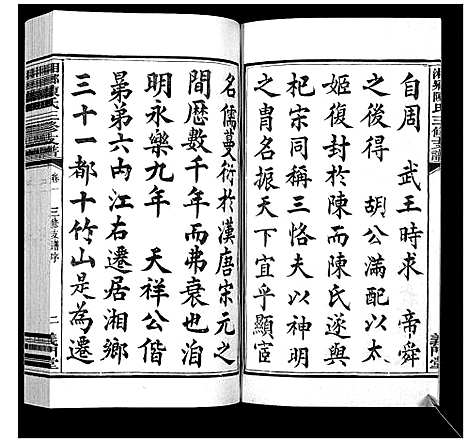 湘鄉陳氏三修支譜
義門堂
自周　武王時求　帝舜
之後得　胡公滿配以太
姬復封於陳而陳氏遂與
杞宋同稱三恪夫以神明
之胄名振天下宜乎顯宦
名儒蔓衍於漢唐宋元之
間歷數千年而弗衰也洎
明永樂九年　天祥公偕
㬅弟六由江右遷居湘鄉
三十一都十竹山是為遷
卷一　三修支譜序　二　義門堂